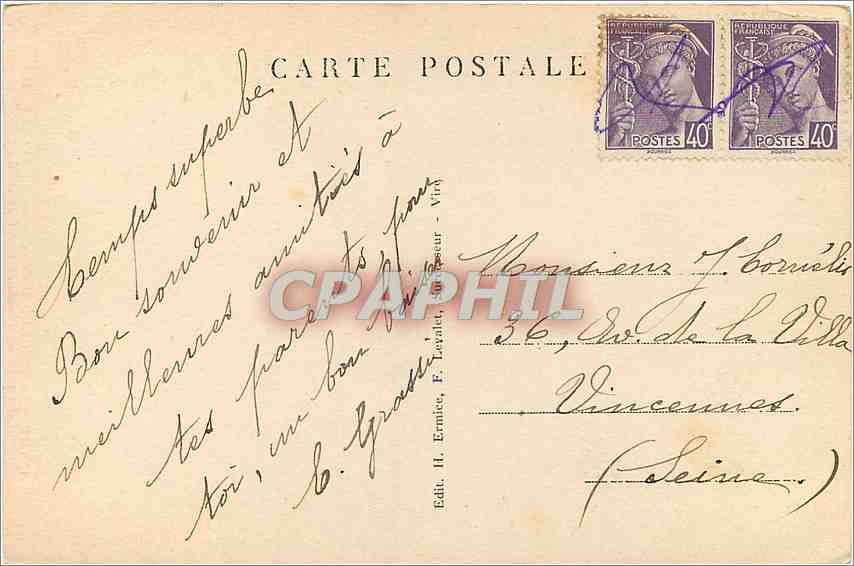 CARTE POSTALE
REPUBLIQUE FRANÇAISE
POSTES 40c
REPUBLIQUE FRANÇAISE
POSTES 40c
Temps superbe
Bon souvenir et
meilleures amitiés à
tes parents, pour
toi, un bon baiser
E.
Edit. H. Ermice, F. Levalet, Successeur - Vire
CPAPHIL
Monsieur J.
36, Av. de la Villa
Vincennes.
(Seine.)